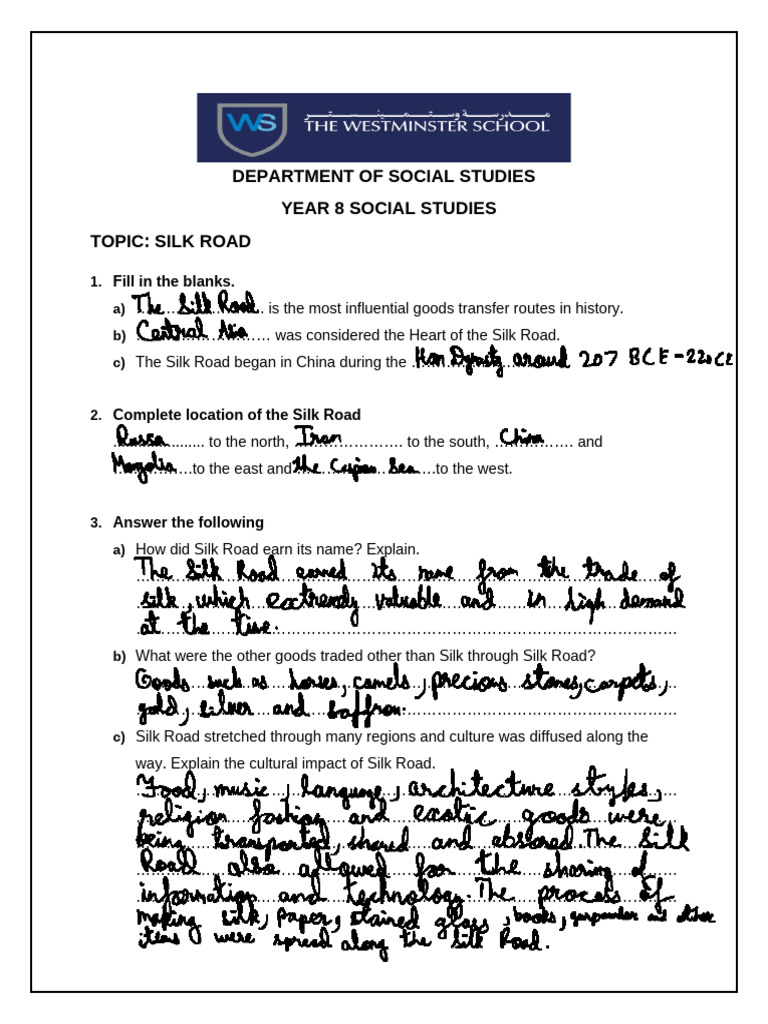 مدرسة وستمينستر
WS THE WESTMINSTER SCHOOL
DEPARTMENT OF SOCIAL STUDIES
YEAR 8 SOCIAL STUDIES
TOPIC: SILK ROAD
1. Fill in the blanks.
a) The Silk Road is the most influential goods transfer routes in history.
b) Central Asia was considered the Heart of the Silk Road.
c) The Silk Road began in China during the Han Dynasty around 207 BCE-220CE
2. Complete location of the Silk Road
Russia to the north, Iran to the south, China and
Mongolia to the east and the Caspian Sea to the west.
3. Answer the following
a) How did Silk Road earn its name? Explain.
The Silk Road earned its name from the trade of
silk, which extremely valuable and in high demand
at the time.
b) What were the other goods traded other than Silk through Silk Road?
Goods such as horses, camels, precious stones, carpets,
gold, silver and saffron.
c) Silk Road stretched through many regions and culture was diffused along the
way. Explain the cultural impact of Silk Road.
Food, music, language, architecture styles,
religion fashion and exotic goods were
being transported, shared and absored. The Silk
Road also allowed for the sharing of
information and technology. The process of
making silk, paper, stained glass, books, gunpowder and other
items were spread along the Silk Road.